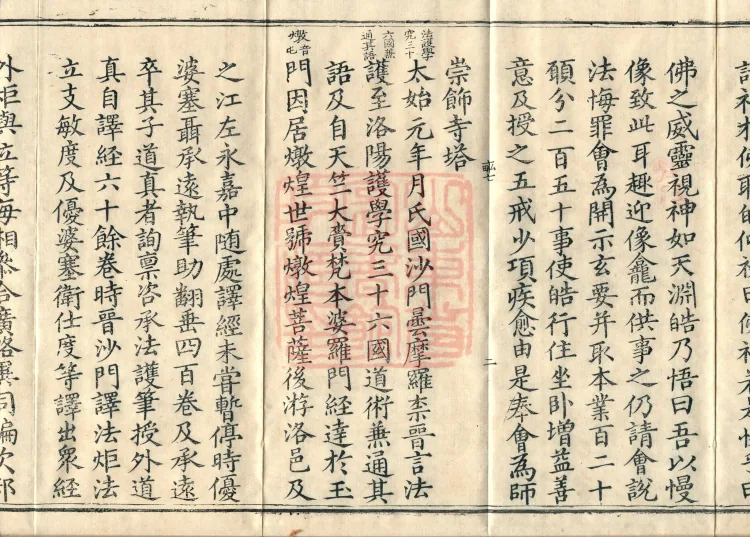 佛之威靈視神如天淵皓乃悟曰吾以慢
像致此耳趣迎像龕而供事之仍請會說
法悔罪會為開示玄要并取本業百二十
願分二百五十事使皓行住坐臥增益善
意及授之五戒少項疾愈由是奉會為師
崇飾寺塔
法護學
究三十
六國兼
通其語
太始元年月氏國沙門曇摩羅柰晉言法
護至洛陽護學究三十六國道術兼通其
語及自天竺大賫梵本婆羅門經達於玉
燉音
屯
門因居燉煌世號燉煌菩薩後游洛邑及
二
之江左永嘉中随處譯經未甞暫停時優
婆塞聶承遠執筆助翻垂四百卷及承遠
卒其子道真者詢禀咨承法護筆授外道
真自譯經六十餘卷時晉沙門譯法炬法
立支敏度及優婆塞衛仕度等譯出眾經
外炬與立等每相參合廣略異同編次部